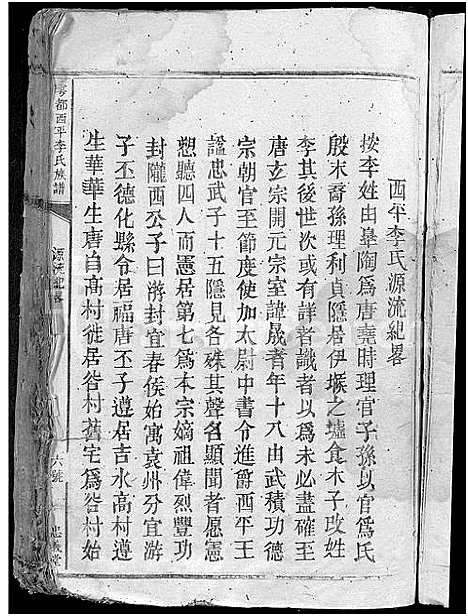 西平李氏源流紀畧
按李姓由臯陶爲唐堯時理官子孫以官爲氏
殷末裔孫理利貞隱居伊堠之墟食木子改姓
李其後世次或有詳者識者以爲未必盡確至
唐玄宗開元宗室諱晟耆年十八由武積功德
宗朝官至節度使加太尉中書令進爵西平王
諡忠武子十五隱見各殊其聲名顯聞者愿憲
愬聽四人而憲居第七爲本宗嫡祖偉烈豐功
封隴西公子曰游封宜春侯始寓袁州分宜游
子丕德化縣令居福唐丕子遵居吉水高村遵
生華華生唐自高村徙居谷村舊宅爲谷村始
雩都西平李氏族譜
源流紀畧
六號
忠義堂